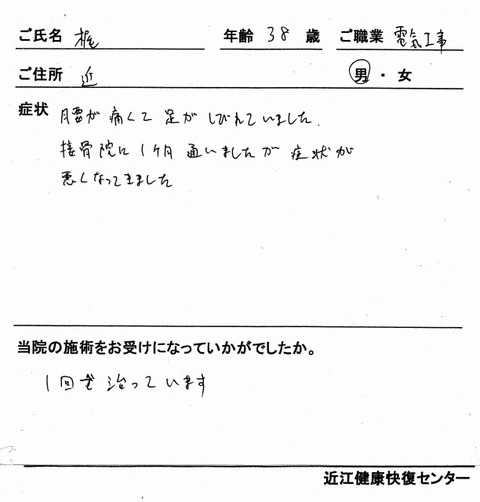 ご氏名 梶 年齢 38 歳 ご職業 電気工事
ご住所 近 男・女
症状 腰が痛くて足がしびれていました.
接骨院に1ヶ月通いましたが症状が
悪くなってきました
当院の施術をお受けになっていかがでしたか。
1回で治っています
近江健康快復センター